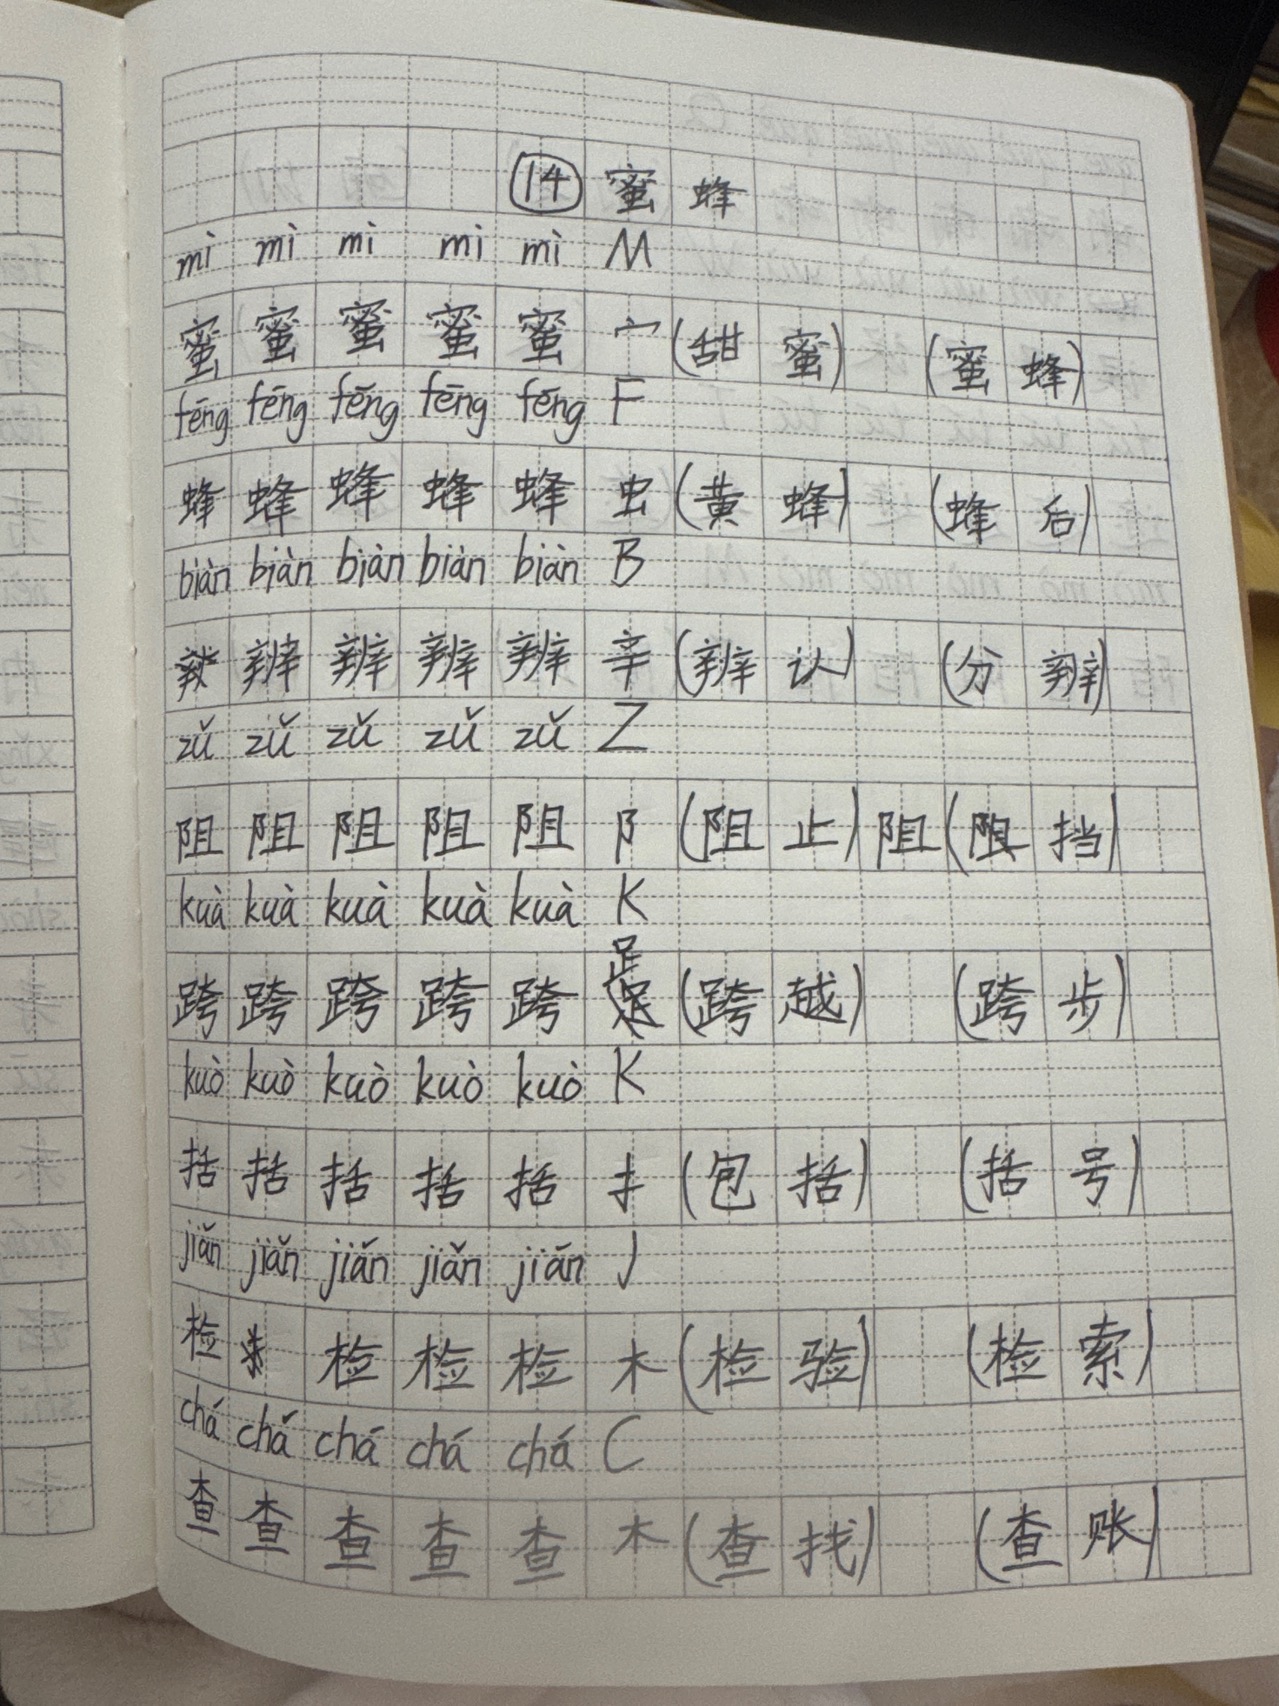 14 蜜蜂
mì mì mì mì mì M
蜜 蜜 蜜 蜜 蜜 宀 (甜蜜) (蜜蜂)
fēng fēng fēng fēng fēng F
蜂 蜂 蜂 蜂 蜂 虫 (黄蜂) (蜂后)
biàn biàn biàn biàn biàn B
辨 辨 辨 辨 辛 (辨认) (分辨)
zǔ zǔ zǔ zǔ zǔ Z
阻 阻 阻 阻 阻 阝 (阻止) 阻 (阻挡)
kuà kuà kuà kuà kuà K
跨 跨 跨 跨 跨 𧾷 (跨越) (跨步)
kuò kuò kuò kuò kuò K
括 括 括 括 括 扌 (包括) (括号)
jiǎn jiǎn jiǎn jiǎn jiǎn J
检 检 检 检 木 (检验) (检索)
chá chá chá chá chá C
查 查 查 查 查 木 (查找) (查账)